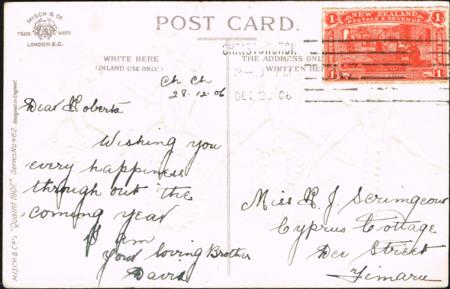 MISCH & Co
TRADE MARK
LONDON, E.C.
POST CARD.
NEW ZEALAND
POSTAGE & REVENUE
1 1
WRITE HERE
(INLAND USE ONLY.)
THE ADDRESS ONLY
WRITTEN HERE
CHRISTCHURCH
DEC 06
Ch Ch
28.12.06
Dear Roberta
Wishing you
every happiness
through out the
coming year
I am
your loving Brother
David
Miss R. J. Scrimgeour
Cyprus Cottage
Dee Street
Timaru
MISCH & Co's "QUAINT NOOK" Series No 462. Designed in England.